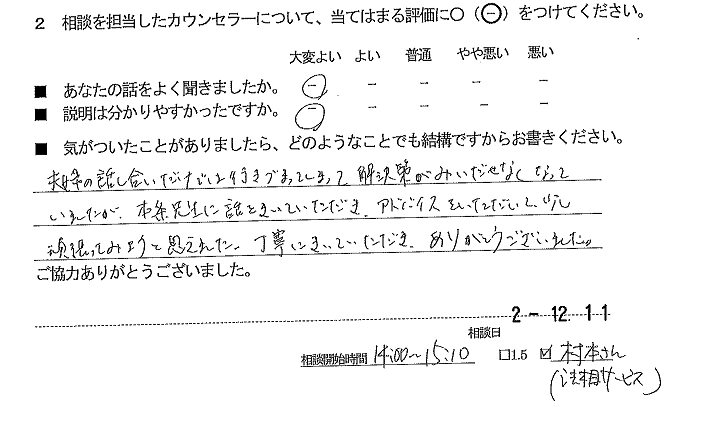 2 相談を担当したカウンセラーについて、当てはまる評価に○（㊀）をつけてください。
大変よい よい 普通 やや悪い 悪い
■ あなたの話をよく聞きましたか。 － － － － －
■ 説明は分かりやすかったですか。 － － － － －
■ 気がついたことがありましたら、どのようなことでも結構ですからお書きください。
夫婦の話し合いだけでは行きづまってしまって、解決策がみいだせなくなって
いましたが、本条先生に話をきいていただき、アドバイスをいただいて、少し
頑張ってみようと思えました。丁寧にきいていただき、ありがとうございました。
ご協力ありがとうございました。
2－12.11
相談日
相談開始時間 14:00～15:10 □1.5 ☑村本さん
(法相サービス)